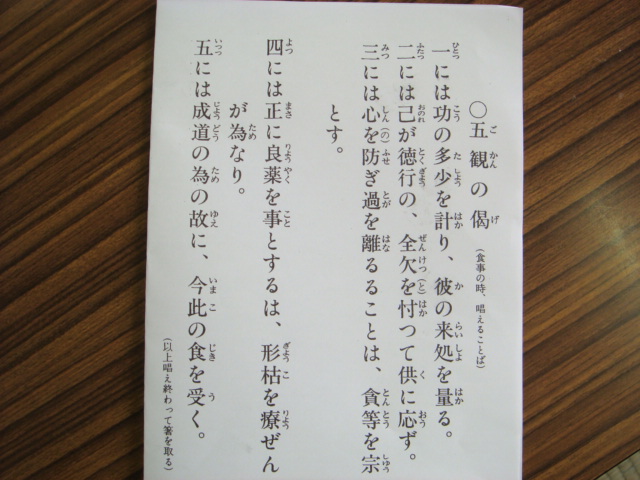 〇五観の偈（食事の時、唱えることば）
一には功の多少を計り、彼の来処を量る。
二には己が徳行の、全欠を忖つて供に応ず。
三には心を防ぎ過を離るることは、貪等を宗
とす。
四には正に良薬を事とするは、形枯を療ぜん
が為なり。
五には成道の為の故に、今此の食を受く。
（以上唱え終わって箸を取る）